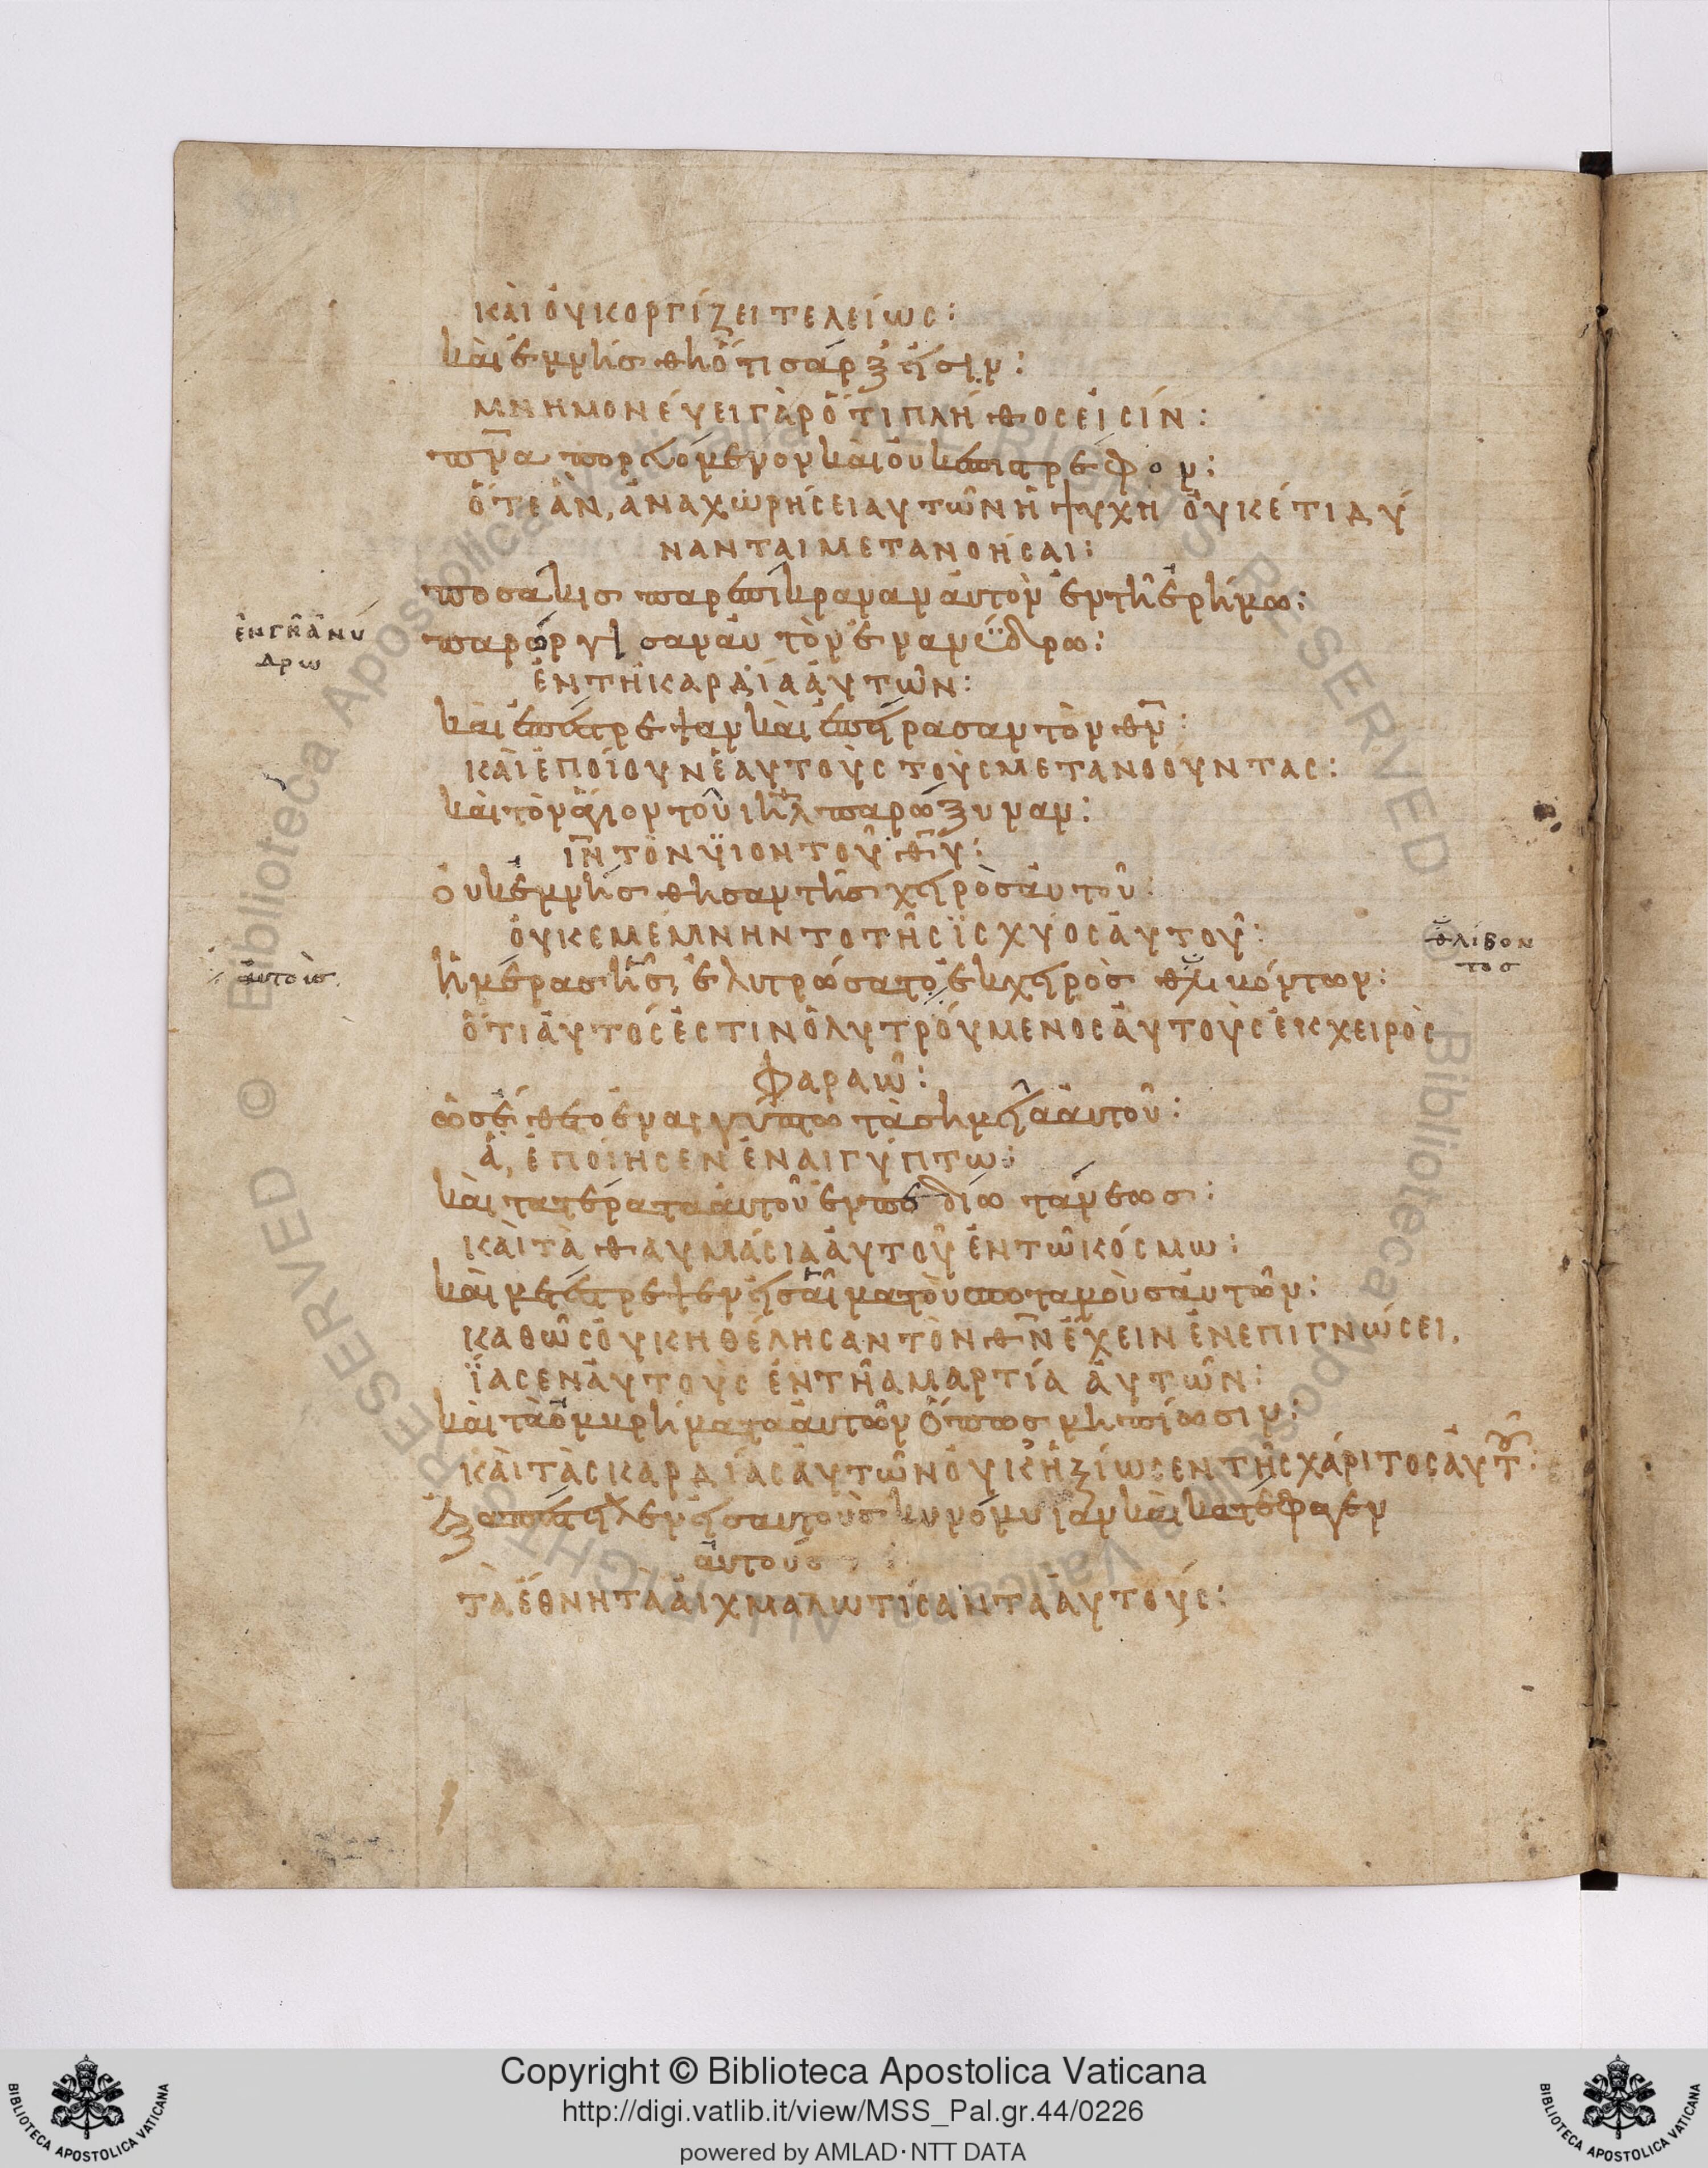 καὶ ὀυκ οργίζει τελείως:
καὶ ἐμνήσθη ὅτι σάρξ ἐισιν:
μνημονέυει γὰρ ὅτι πλῆθος ἐισίν:
πν̅α πορευόμενον καὶ ὀυκ επιστρέφον:
ὅτε ἂν, ἀναχωρήσει αυτῶν ἡ ψυχη ὀυκέτι δύ
νανται μετανοήσαι:
ποσακις παρεπίκραναν ἀυτὸν ἐν τῆ ἐρήμω:
ἐν γῆ ἀνύ
δρω
παρόργισαν ἀυτὸν ἐν ανύδρω:
ἐν τῆ καρδία ἀυτῶν:
καὶ ἐπέστρεψαν καὶ ἐπείρασαν τὸν θν̅:
καὶ ἐποίουν ἑαυτοὺς τοὺς μετανοούντας:
καὶ τὸν ἅγιον τοῦ ιη̅λ παρώξυναν:
ιν̅ τὸν υϊον τοῦ θυ̅:
ὀυκ ἐμνήσθησαν τῆς χειρὸς ἀυτοῦ:
ὀυκ εμέμνηντο τῆς ἰσχύος ἀυτοῦ:
θλίβον
τος
ἀυτοὺς
ἡμέρας ἧς ἐλυτρώσατο ἐκ χειρὸς θλιβόντων:
ὅτι ἀυτός ἐστιν ὁ λυτρούμενος ἀυτοὺς ἐκ χειρὸς
φαραῶ:
ὡς ἔθετο ἐν αιγύπτω τὰ σημεῖα ἀυτοῦ:
ἃ, ἐποίησεν ἐν αιγύπτω:
καὶ τα τέρατα ἀυτοῦ ἐν πεδίω τάνεως:
καὶ τὰ θαυμάσια ἀυτοῦ ἐν τῶ κόσμω:
καὶ μετέστρεψεν ἐις αἷμα τοὺς ποταμοὺς ἀυτῶν:
καθῶς ὀυκ ηθέλησαν τὸν θν̅ ἔχειν ἐν επιγνώσει,
ἴασεν ἀυτοὺς ἐν τῆ αμαρτία ἀυτῶν:
καὶ τὰ ὀμβρήματα ἀυτῶν ὅπως μη πίωσιν:
καὶ τὰς καρδίας ἀυτῶν ὀυκ ἠξίωσεν τῆς χάριτος ἀυτοῦ:
ἐξαπέστειλεν ἐις αυτοὺς κυνόμυιαν καὶ κατέφαγεν
ἀυτούς
τὰ ἔθνη τὰ ἀιχμαλωτίσαντα ἀυτούς:
Copyright © Biblioteca Apostolica Vaticana
http://digi.vatlib.it/view/MSS_Pal.gr.44/0226
powered by AMLAD·NTT DATA
BIBLIOTECA APOSTOLICA VATICANA
BIBLIOTECA APOSTOLICA VATICANA